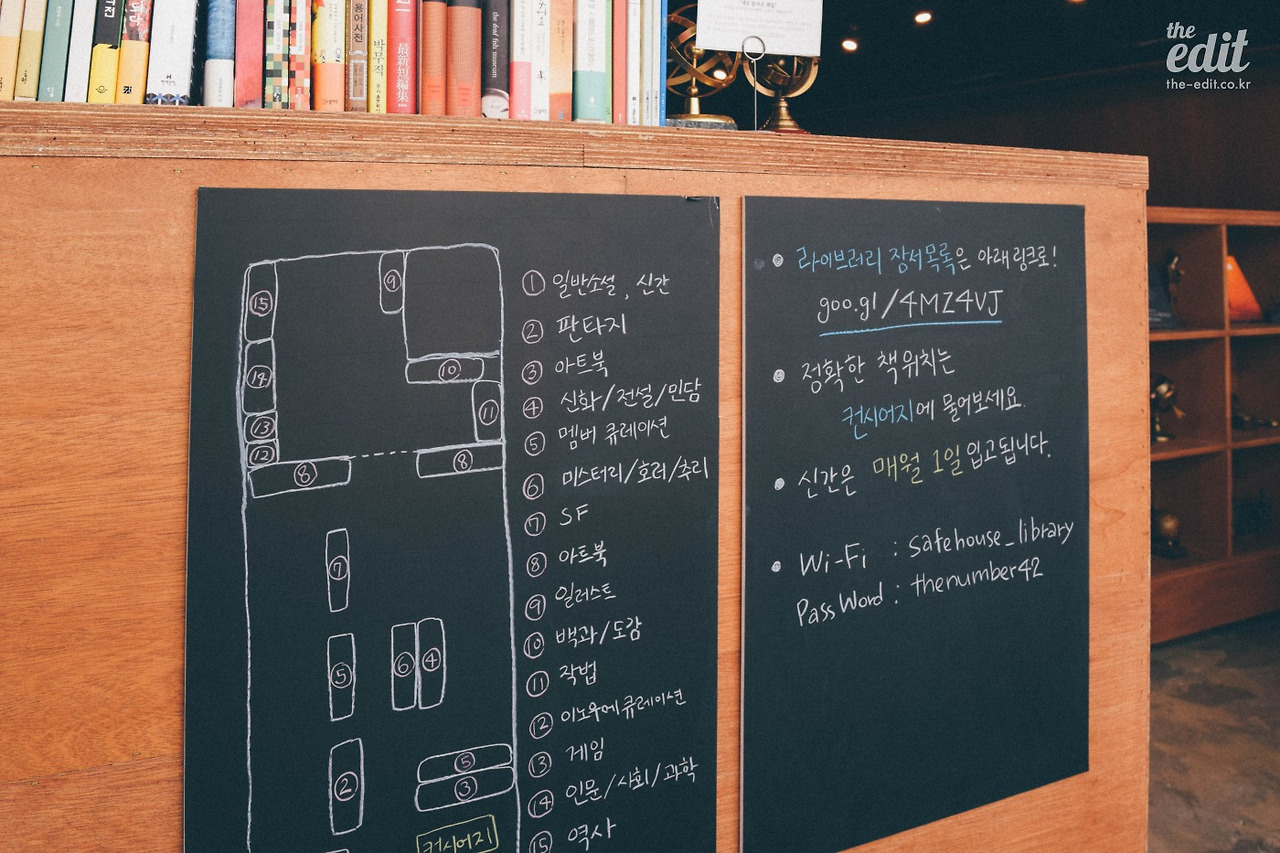 最新短編集
용어사전
박무직
the dead fish museum
the
edit
the-edit.co.kr
⑮
⑭
⑬
⑫
⑧
⑨
⑩
⑪
⑧
⑦
⑤
⑥
④
②
⑤
③
컨시어지
① 일반소설, 신간
② 판타지
③ 아트북
④ 신화/전설/민담
⑤ 멤버 큐레이션
⑥ 미스터리/호러/추리
⑦ SF
⑧ 아트북
⑨ 일러스트
⑩ 백과/도감
⑪ 작법
⑫ 이노우에 큐레이션
⑬ 게임
⑭ 인문/사회/과학
⑮ 역사
• 라이브러리 장서목록은 아래링크로!
goo.gl/4MZ4VJ
• 정확한 책위치는
컨시어지에 물어보세요.
• 신간은 매월 1일 입고됩니다.
• Wi-Fi : safehouse_library
PassWord : thenumber42